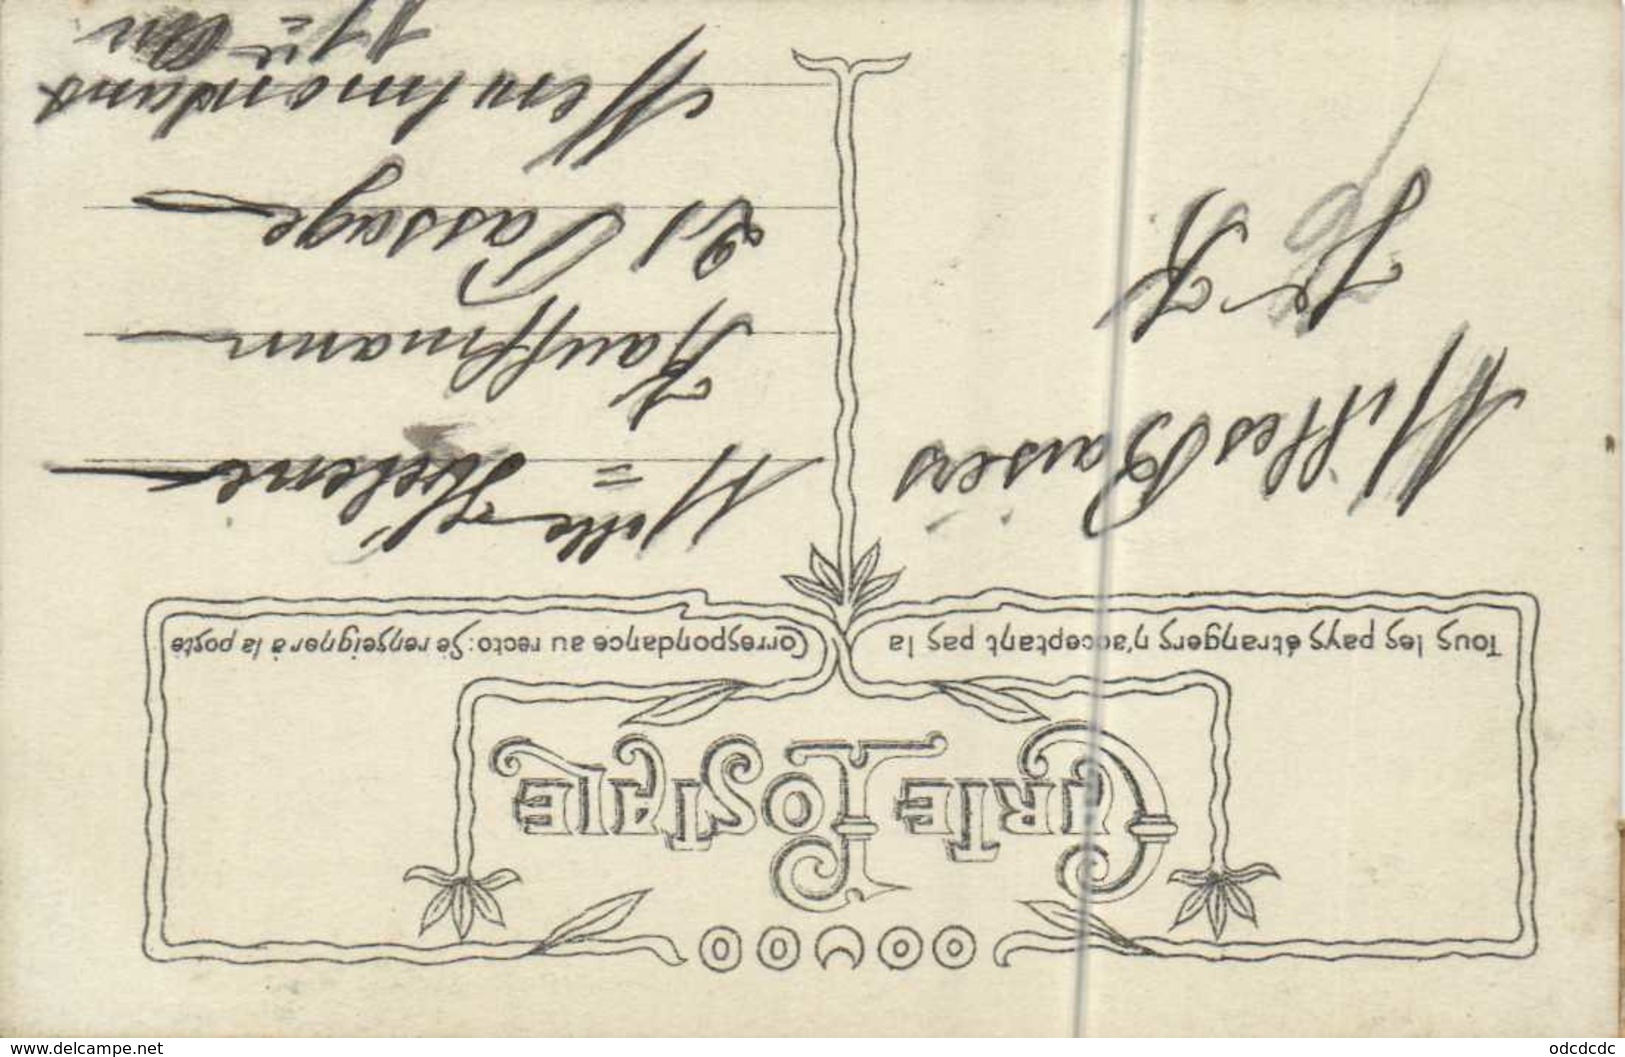 CARTE POSTALE
Tous les pays étrangers n'acceptant pas la
Correspondance au recto: Se renseigner à la poste
Milles Baisers
Mlle Helene
Kauffmann
21 Passage
Menilmontant
www.delcampe.net
odcdcdc